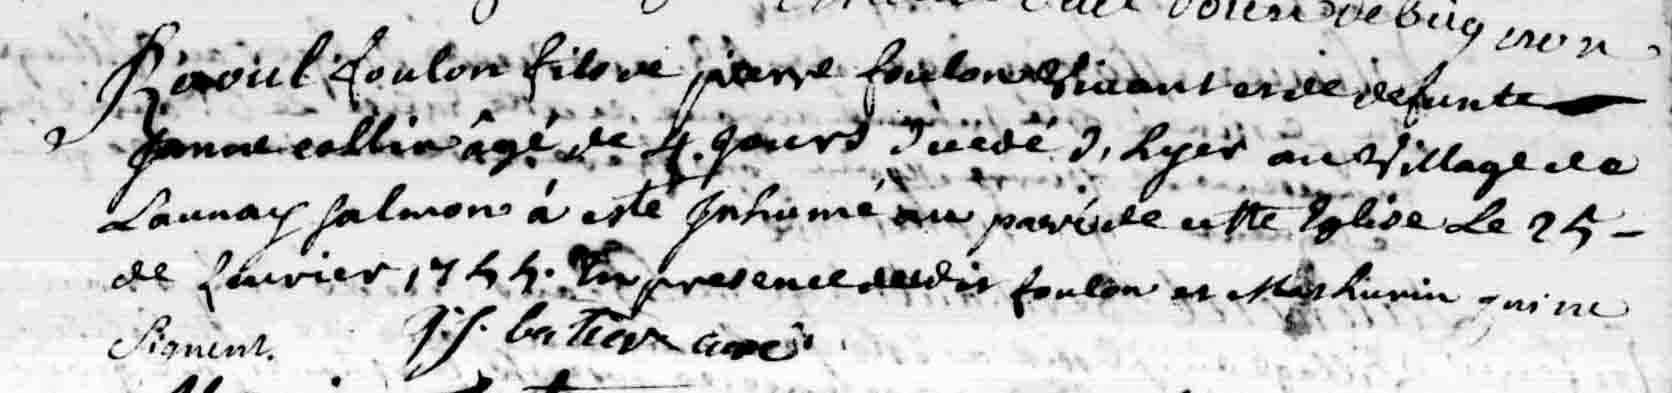 de bugnon
Raoul foulon fils de pierre foulon Vivant et de defunte
Janne collin âgé de 4 jours decedé d'hyer au Village de
Launay Salmon á esté Inhumé au pavé de cette Eglise Le 25
de fevrier 1744. En presence desdit foulon et Mathurin qui ne
Signent. curé